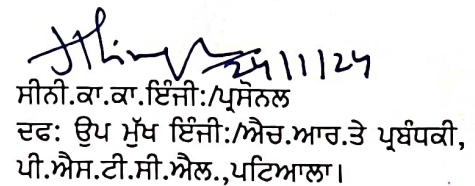 24/11/24
ਸੀਨੀ.ਕਾ.ਕਾ.ਇੰਜੀ:/ਪ੍ਰਸੋਨਲ
ਦਫ: ਉਪ ਮੁੱਖ ਇੰਜੀ:/ਐਚ.ਆਰ.ਤੇ ਪ੍ਰਬੰਧਕੀ,
ਪੀ.ਐਸ.ਟੀ.ਸੀ.ਐਲ.,ਪਟਿਆਲਾ।